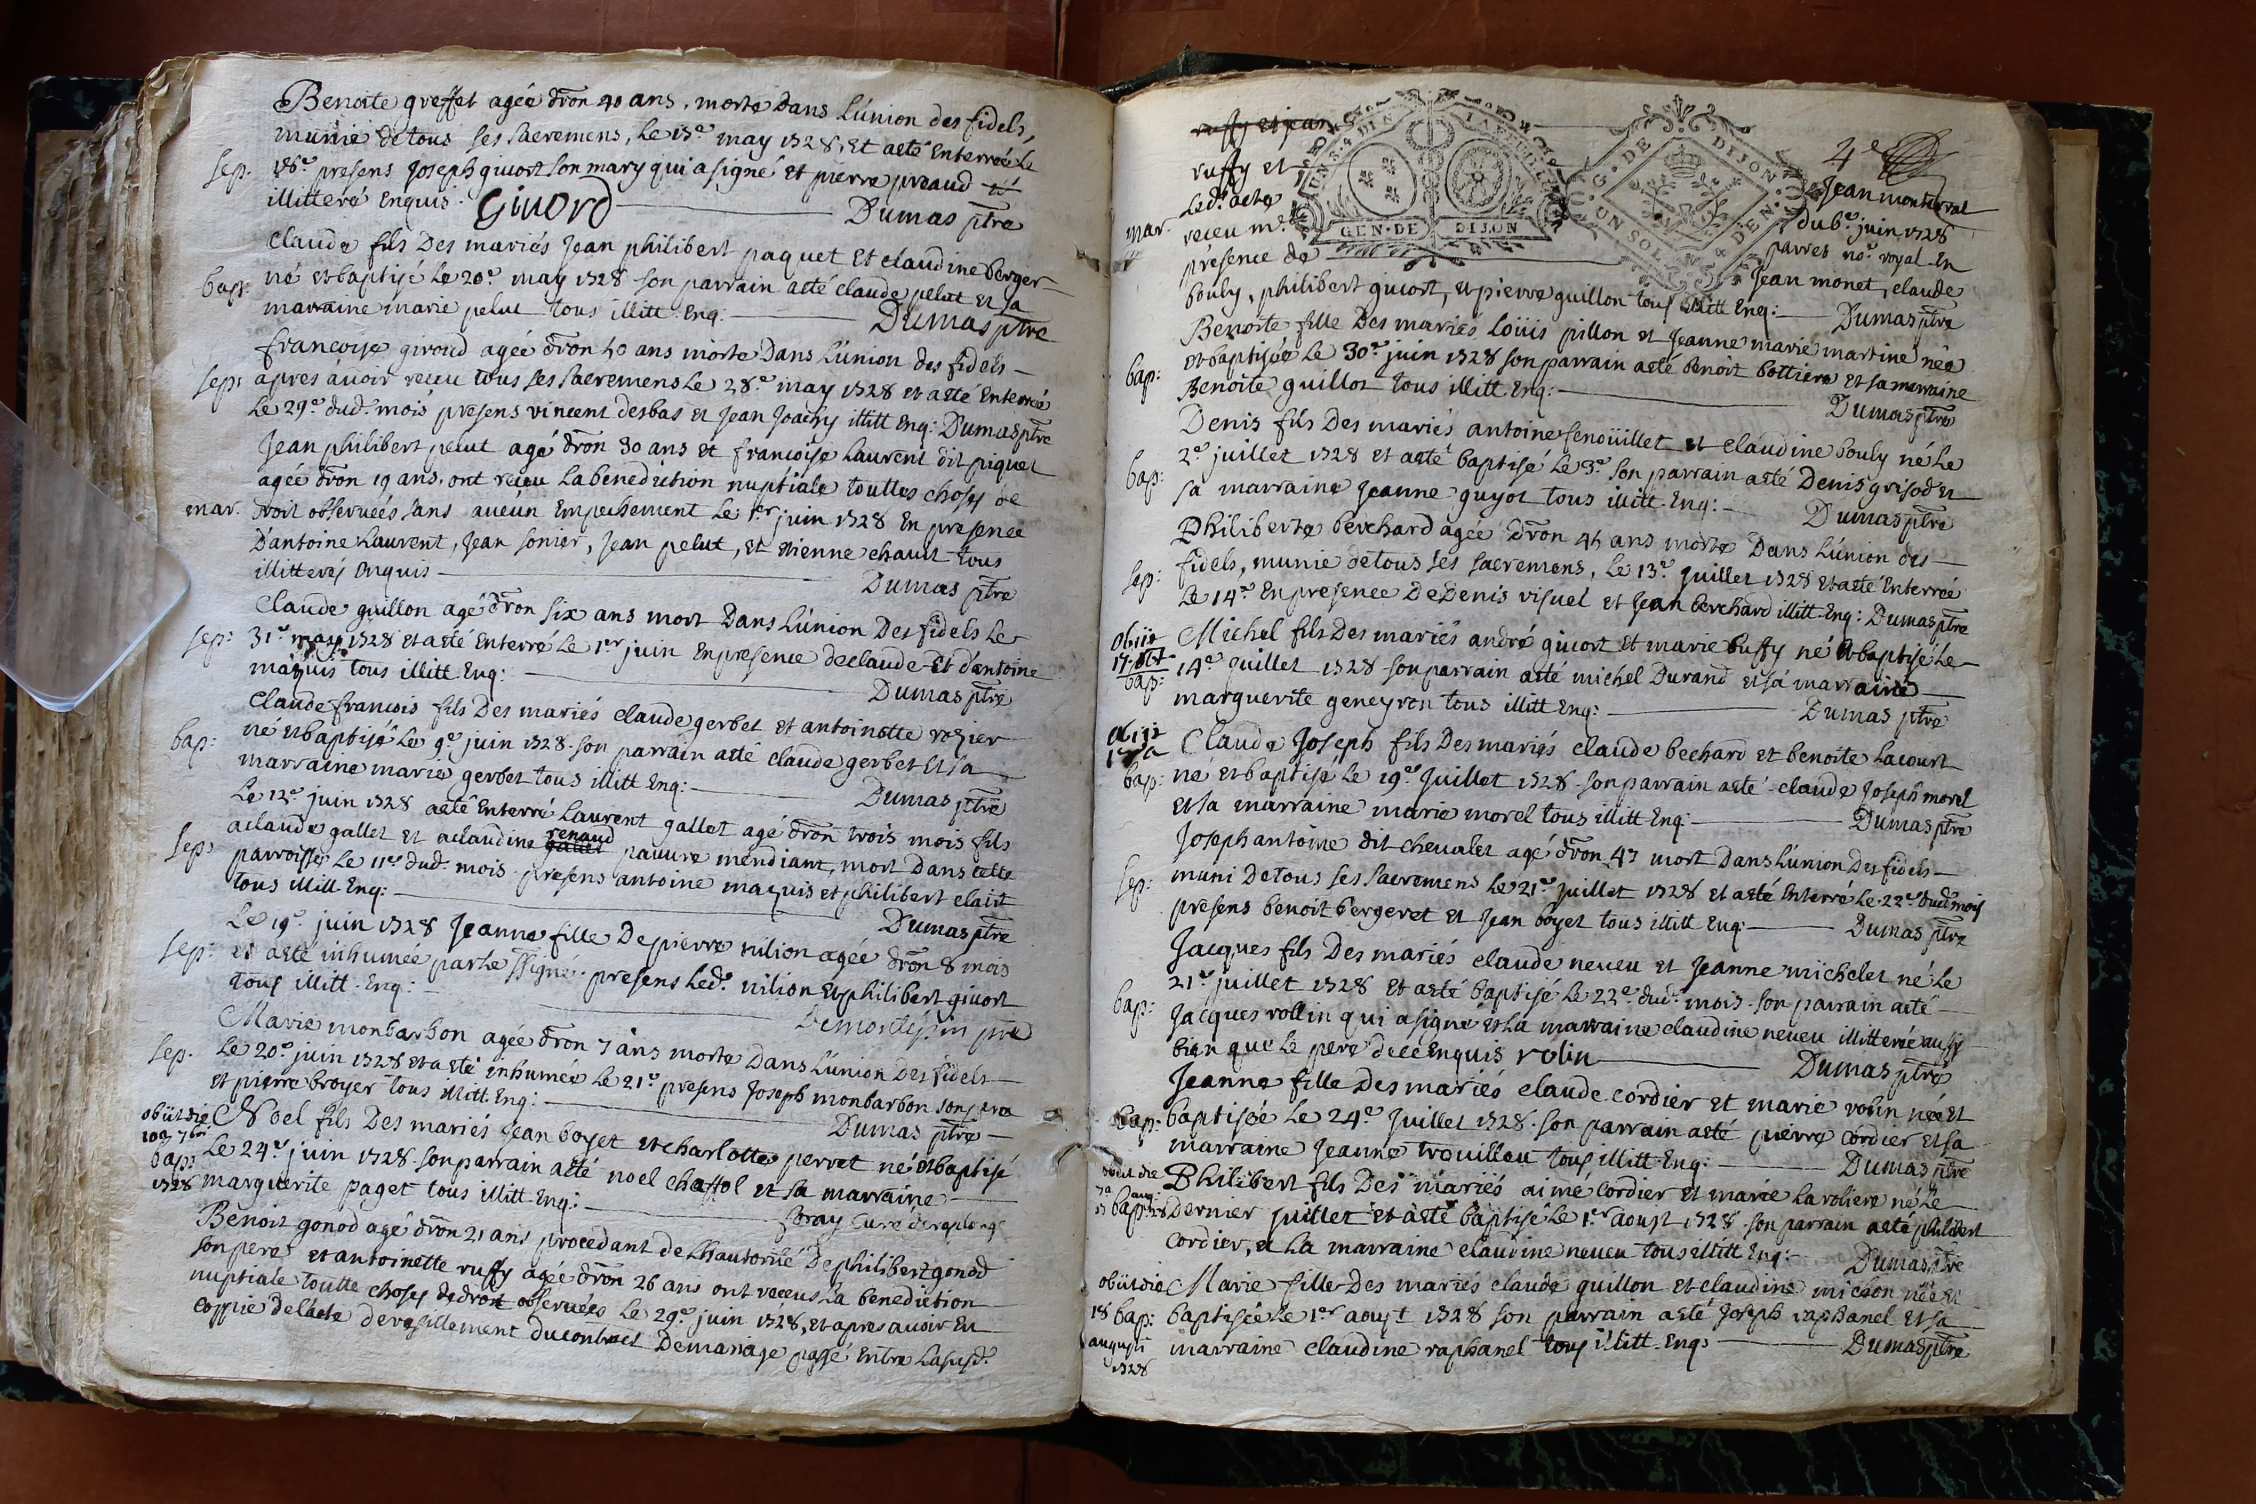 Benoite greffet agée dron 40 ans, morte dans l'union des fidels,
munie de tous ses sacremens, le 15e may 1728, et a eté enterrée le
sep. 16e presens Joseph givort son mary qui a signé et pierre preaud
illitteré enquis. Givord Dumas ptre
Claude fils des mariés Jean philibert paquet et claudine berger
bap: né et baptisé le 20e may 1728 son parrain a eté claude pelut et sa
marraine marie pelut tous illitt. Enq. Dumas ptre
francoise giroud agée dron 40 ans morte dans l'union des fidels
sep: apres avoir receu tous ses sacremens le 28e may 1728 et a eté enterrée
le 29e dud. mois presens vincent desbas et Jean Joachy illitt Enq: Dumas ptre
Jean philibert pelut agé dron 30 ans et francoise Laurent dit piquet
agée dron 19 ans, ont receu la benediction nuptiale touttes choses de
mar. droit observées sans aucun empechement le 1er juin 1728 En presence
D'antoine Laurent, Jean sonier, Jean pelut, et etienne chaut tous
illitterés Enquis Dumas ptre
Claude guillon agé dron six ans mort dans l'union des fidels le
sep: 31e may 1728 et a eté enterré le 1er juin en presence de claude et d'antoine
maquis tous illitt. Enq: Dumas ptre
Claude francois fils des mariés claude gerbet et antoinette rozier
bap: né et baptisé le 9e juin 1728. son parrain a eté claude gerbet et sa
marraine marie gerbet tous illitt Enq: Dumas ptre
Le 12e juin 1728 a eté enterré Laurent gallet agé dron trois mois fils
renaud
sep: a claude gallet et a claudine gallet pauvre mendiant, mort dans cette
parroisse le 11e dud. mois. presens antoine maquis et philibert clait
tous illitt Enq: Dumas ptre
Le 19e juin 1728 Jeanne fille de pierre nilion agée dron 8 mois
sep: et a eté inhumée par le ssigné. presens led. nilion et philibert givort
tous illitt. Enq: ptre
Marie monbarbon agée dron 7 ans morte dans l'union des fidels
sep. le 20e juin 1728 et a eté inhumée le 21e presens Joseph monbarbon son pere
et pierre broyer tous illitt. Enq: Dumas ptre
obiit die Noel fils des mariés Jean boyet et charlotte perret né et baptisé
10a 7bri
bap: le 24e juin 1728. son parrain a eté noel chaffol et sa marraine
1728 marguerite paget tous illitt Enq: Bray curé
Benoit gonod agé dron 21 ans procedant de l'hautorité de philibert gonod
son pere et antoinette ruffy agée dron 26 ans ont receus la benediction
nuptiale toutte choses de droit observées le 29e juin 1728, et apres avoir eu
coppie de l'acte de resillement du contract de mariage passé entre lasusd.
ruffy et jean
4e
ruffy et Jean monterrat
led. acte du 6e juin 1728
mar. receu me. parres no. royal En
présence de Jean monet, claude
UN S. 4 DEN LA FEUILLE
GEN. DE DIJON
G. DE DIJON UN SOL 4 DEN.
bouly, philibert givort, et pierre guillon tous illitt Enq: Dumas ptre
Benoite fille des mariés Loüis pillon et Jeanne marie martine née
bap: et baptisée le 30e juin 1728 son parrain a eté benoit bottiere et sa marraine
Benoite guillot tous illitt Enq: Dumas ptre
Denis fils des mariés antoine fenoüillet et claudine bouly né le
bap: 2e juillet 1728 et a eté baptisé le 3e son parrain a eté Denis grisod et
sa marraine Jeanne guyot tous illitt. Enq: Dumas ptre
Philiberte berchard agée dron 45 ans morte dans l'union des
sep: fidels, munie de tous ses sacremens, le 13e juillet 1728 et a eté enterrée
le 14e en presence de Denis visuel et Jean berchard illitt. Enq: Dumas ptre
obiit
Michel fils des mariés andré givort et marie buffy né et baptisé le
17. oct
bap: 14e juillet 1728 son parrain a eté michel Durand et sa marraine
marguerite geneyron tous illitt Enq: Dumas ptre
obiit Claude Joseph fils des mariés claude bechard et benoite Lacourt
bap: né et baptisé le 19e juillet 1728. son parrain a eté claude Joseph morel
et sa marraine marie morel tous illitt Enq: Dumas ptre
Joseph antoine dit chevalet agé dron 47 mort dans l'union des fidels
sep: muni de tous ses sacremens le 21e juillet 1728 et a eté enterré le 22e dud. mois
presens benoit bergeret et Jean boyet tous illitt Enq: Dumas ptre
Jacques fils des mariés claude neveu et Jeanne michelet né le
bap: 21e juillet 1728 et a eté baptisé le 22e dud. mois. son parrain a eté
Jacques rollin qui a signé et la marraine claudine neveu illitterée aussy
bien que le pere de ce Enquis rolin Dumas ptre
Jeanne fille des mariés claude cordier et marie robin née et
bap: baptisée le 24e juillet 1728. son parrain a eté pierre cordier et sa
marraine Jeanne trouilleu tous illitt. Enq: Dumas ptre
obiit die Philibert fils des mariés aimé cordier et marie la roliere né le
bap: dernier juillet et a eté baptisé le 1er aoust 1728. son parrain a eté philibert
cordier, et la marraine claudine neveu tous illitt Enq: Dumas ptre
obiit die Marie fille des mariés claude guillon et claudine michon née et
18 bap: baptisée le 1er aoust 1728 son parrain a eté Joseph raphanel et sa
augusti marraine claudine raphanel tous illitt. Enq: Dumas ptre
1728